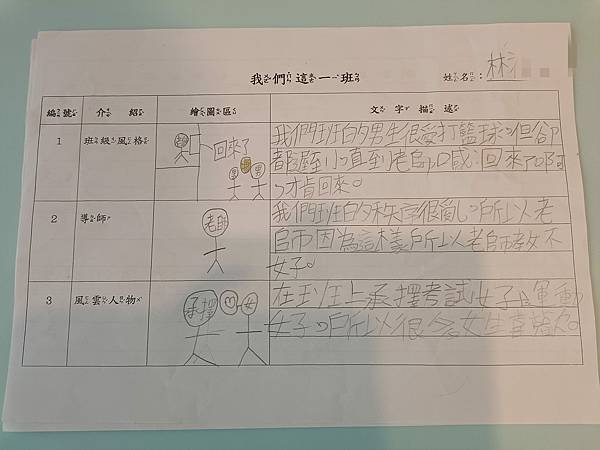 我們這一班
姓名：林
編號 介紹 繪圖區 文字描述
1 班級風格
回來了
男 男
我們班的男生很愛打籃球，但卻
都遲到，直到老師喊：回來了啊
，才肯回來。
2 導師
老師
我們班的秩序很亂，所以老
師因為這樣所以老師教不
好。
3 風雲人物
承擇 女
在班上承擇考試好、運動
好，所以很令女生喜歡。